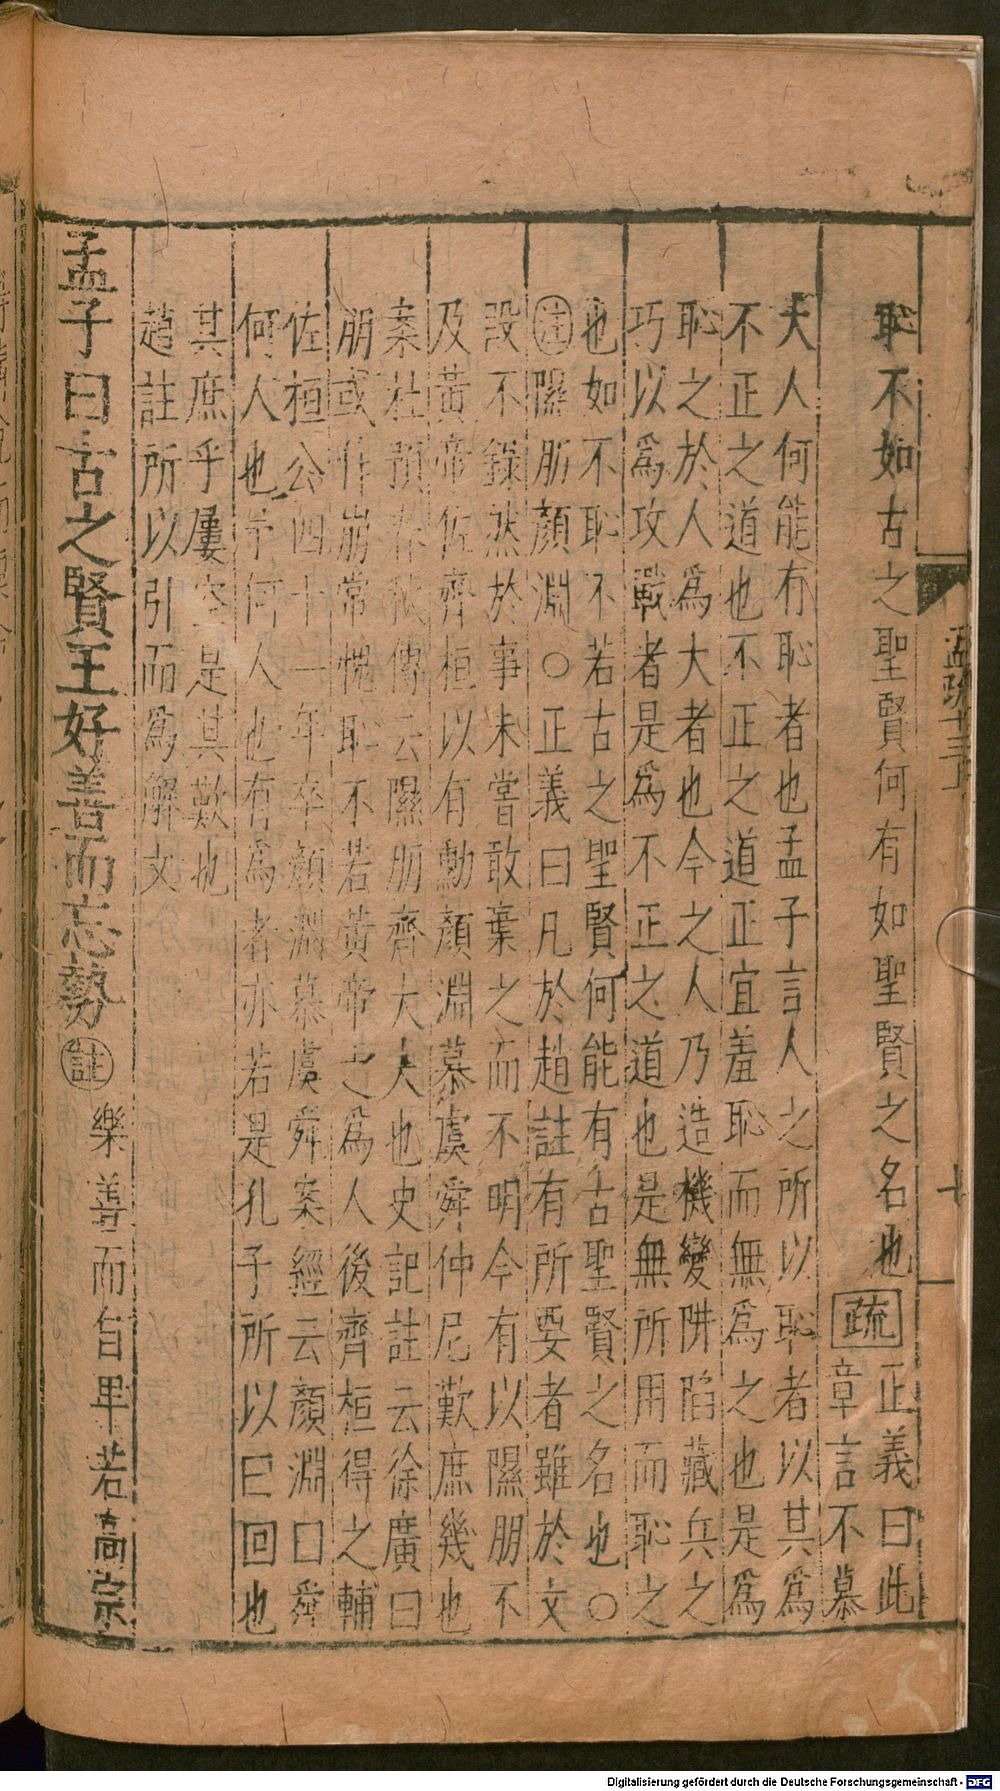 孟疏十三下
七
恥不如古之聖賢何有如聖賢之名也疏正義曰此
章言不慕
大人何能有恥者也孟子言人之所以恥者以其為
不正之道也不正之道正宜羞恥而無為之也是為
恥之於人爲大者也今之人乃造機變阱陷藏兵之
巧以爲攻戰者是爲不正之道也是無所用而恥之
也如不恥不若古之聖賢何能有古聖賢之名也○
注隰朋顏淵○正義曰凡於趙註有所要者雖於文
段不錄然於事未嘗敢棄之而不明今有以隰朋不
及黃帝佐齊桓以有勳顏淵慕虞舜仲尼歎庶幾也
案杜預春秋傳云隰朋齊大夫也史記註云徐廣曰
朋或作崩常愧恥不若黃帝之爲人後齊桓得之輔
佐桓公四十一年卒顏淵慕虞舜案經云顏淵曰舜
何人也予何人也有爲者亦若是孔子所以曰回也
其庶乎屢空是其歎也
趙註所以引而爲解文
孟子曰古之賢王好善而忘勢註樂善而自卑若高宗
Digitalisierung gefördert durch die Deutsche Forschungsgemeinschaft - DFG